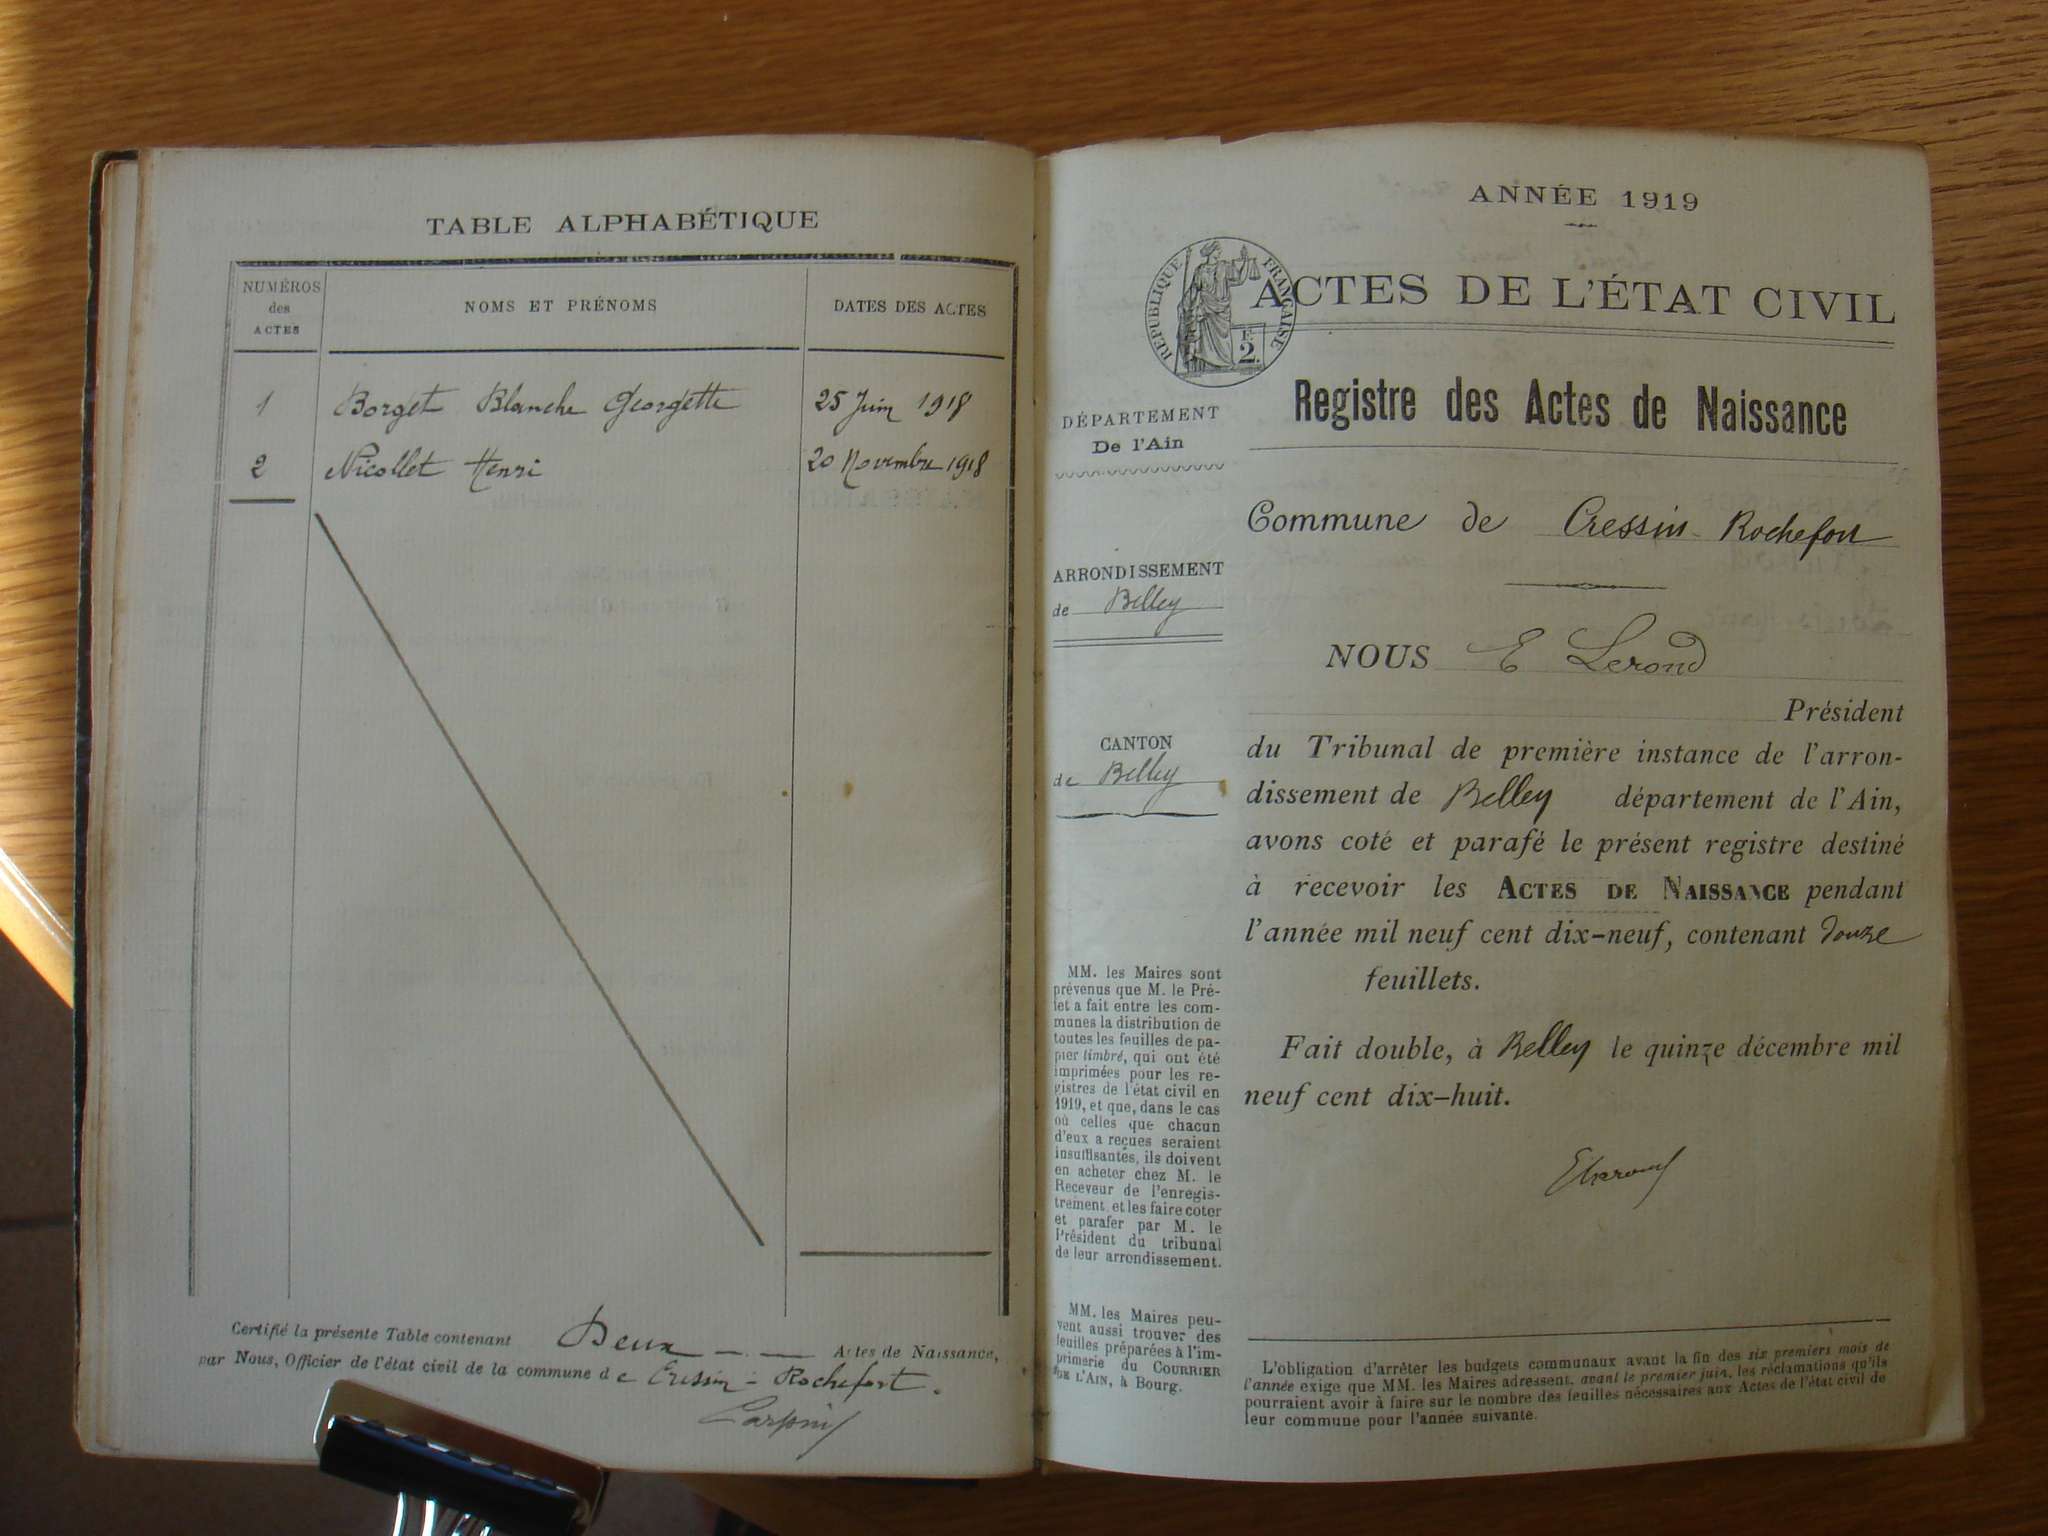 TABLE ALPHABÉTIQUE
NUMÉROS
des
ACTES
NOMS ET PRÉNOMS
DATES DES ACTES
1 Borget Blanche Georgette 25 Juin 1918
2 Nicollet Henri 20 Novembre 1918
Certifié la présente Table contenant Deux Actes de Naissance,
par Nous, Officier de l'état civil de la commune de Cressin-Rochefort.
ANNÉE 1919
RÉPUBLIQUE FRANÇAISE
F.
2.
ACTES DE L'ÉTAT CIVIL
Registre des Actes de Naissance
DÉPARTEMENT
De l'Ain
ARRONDISSEMENT
de Belley
CANTON
de Belley
MM. les Maires sont
prévenus que M. le Pré-
fet a fait entre les com-
munes la distribution de
toutes les feuilles de pa-
pier timbré, qui ont été
imprimées pour les re-
gistres de l'état civil en
1919, et que, dans le cas
où celles que chacun
d'eux a reçues seraient
insuffisantes, ils doivent
en acheter chez M. le
Receveur de l'enregis-
trement et les faire coter
et parafer par M. le
Président du tribunal
de leur arrondissement.
MM. les Maires peu-
vent aussi trouver des
feuilles préparées à l'im-
primerie du COURRIER
DE L'AIN, à Bourg.
Commune de Cressin-Rochefort
NOUS E Lerond
Président
du Tribunal de première instance de l'arron-
dissement de Belley département de l'Ain,
avons coté et parafé le présent registre destiné
à recevoir les ACTES DE NAISSANCE pendant
l'année mil neuf cent dix-neuf, contenant douze
feuillets.
Fait double, à Belley le quinze décembre mil
neuf cent dix-huit.
L'obligation d'arrêter les budgets communaux avant la fin des six premiers mois de
l'année exige que MM. les Maires adressent, avant le premier juin, les réclamations qu'ils
pourraient avoir à faire sur le nombre des feuilles nécessaires aux Actes de l'état civil de
leur commune pour l'année suivante.